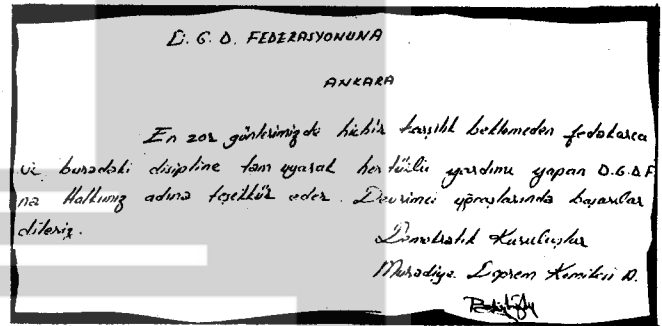 D. G. D. FEDERASYONUNA
ANKARA
En zor günlerimizde hiçbir karşılık beklemeden fedakarca
ve buradaki disipline tam uyarak her türlü yardımı yapan D.G.D.F
na Halkımız adına teşekkür eder. Devrimci uğraşlarında başarılar
dileriz.
Demokratik Kuruluşlar
Muradiye Deprem Komitesi A.